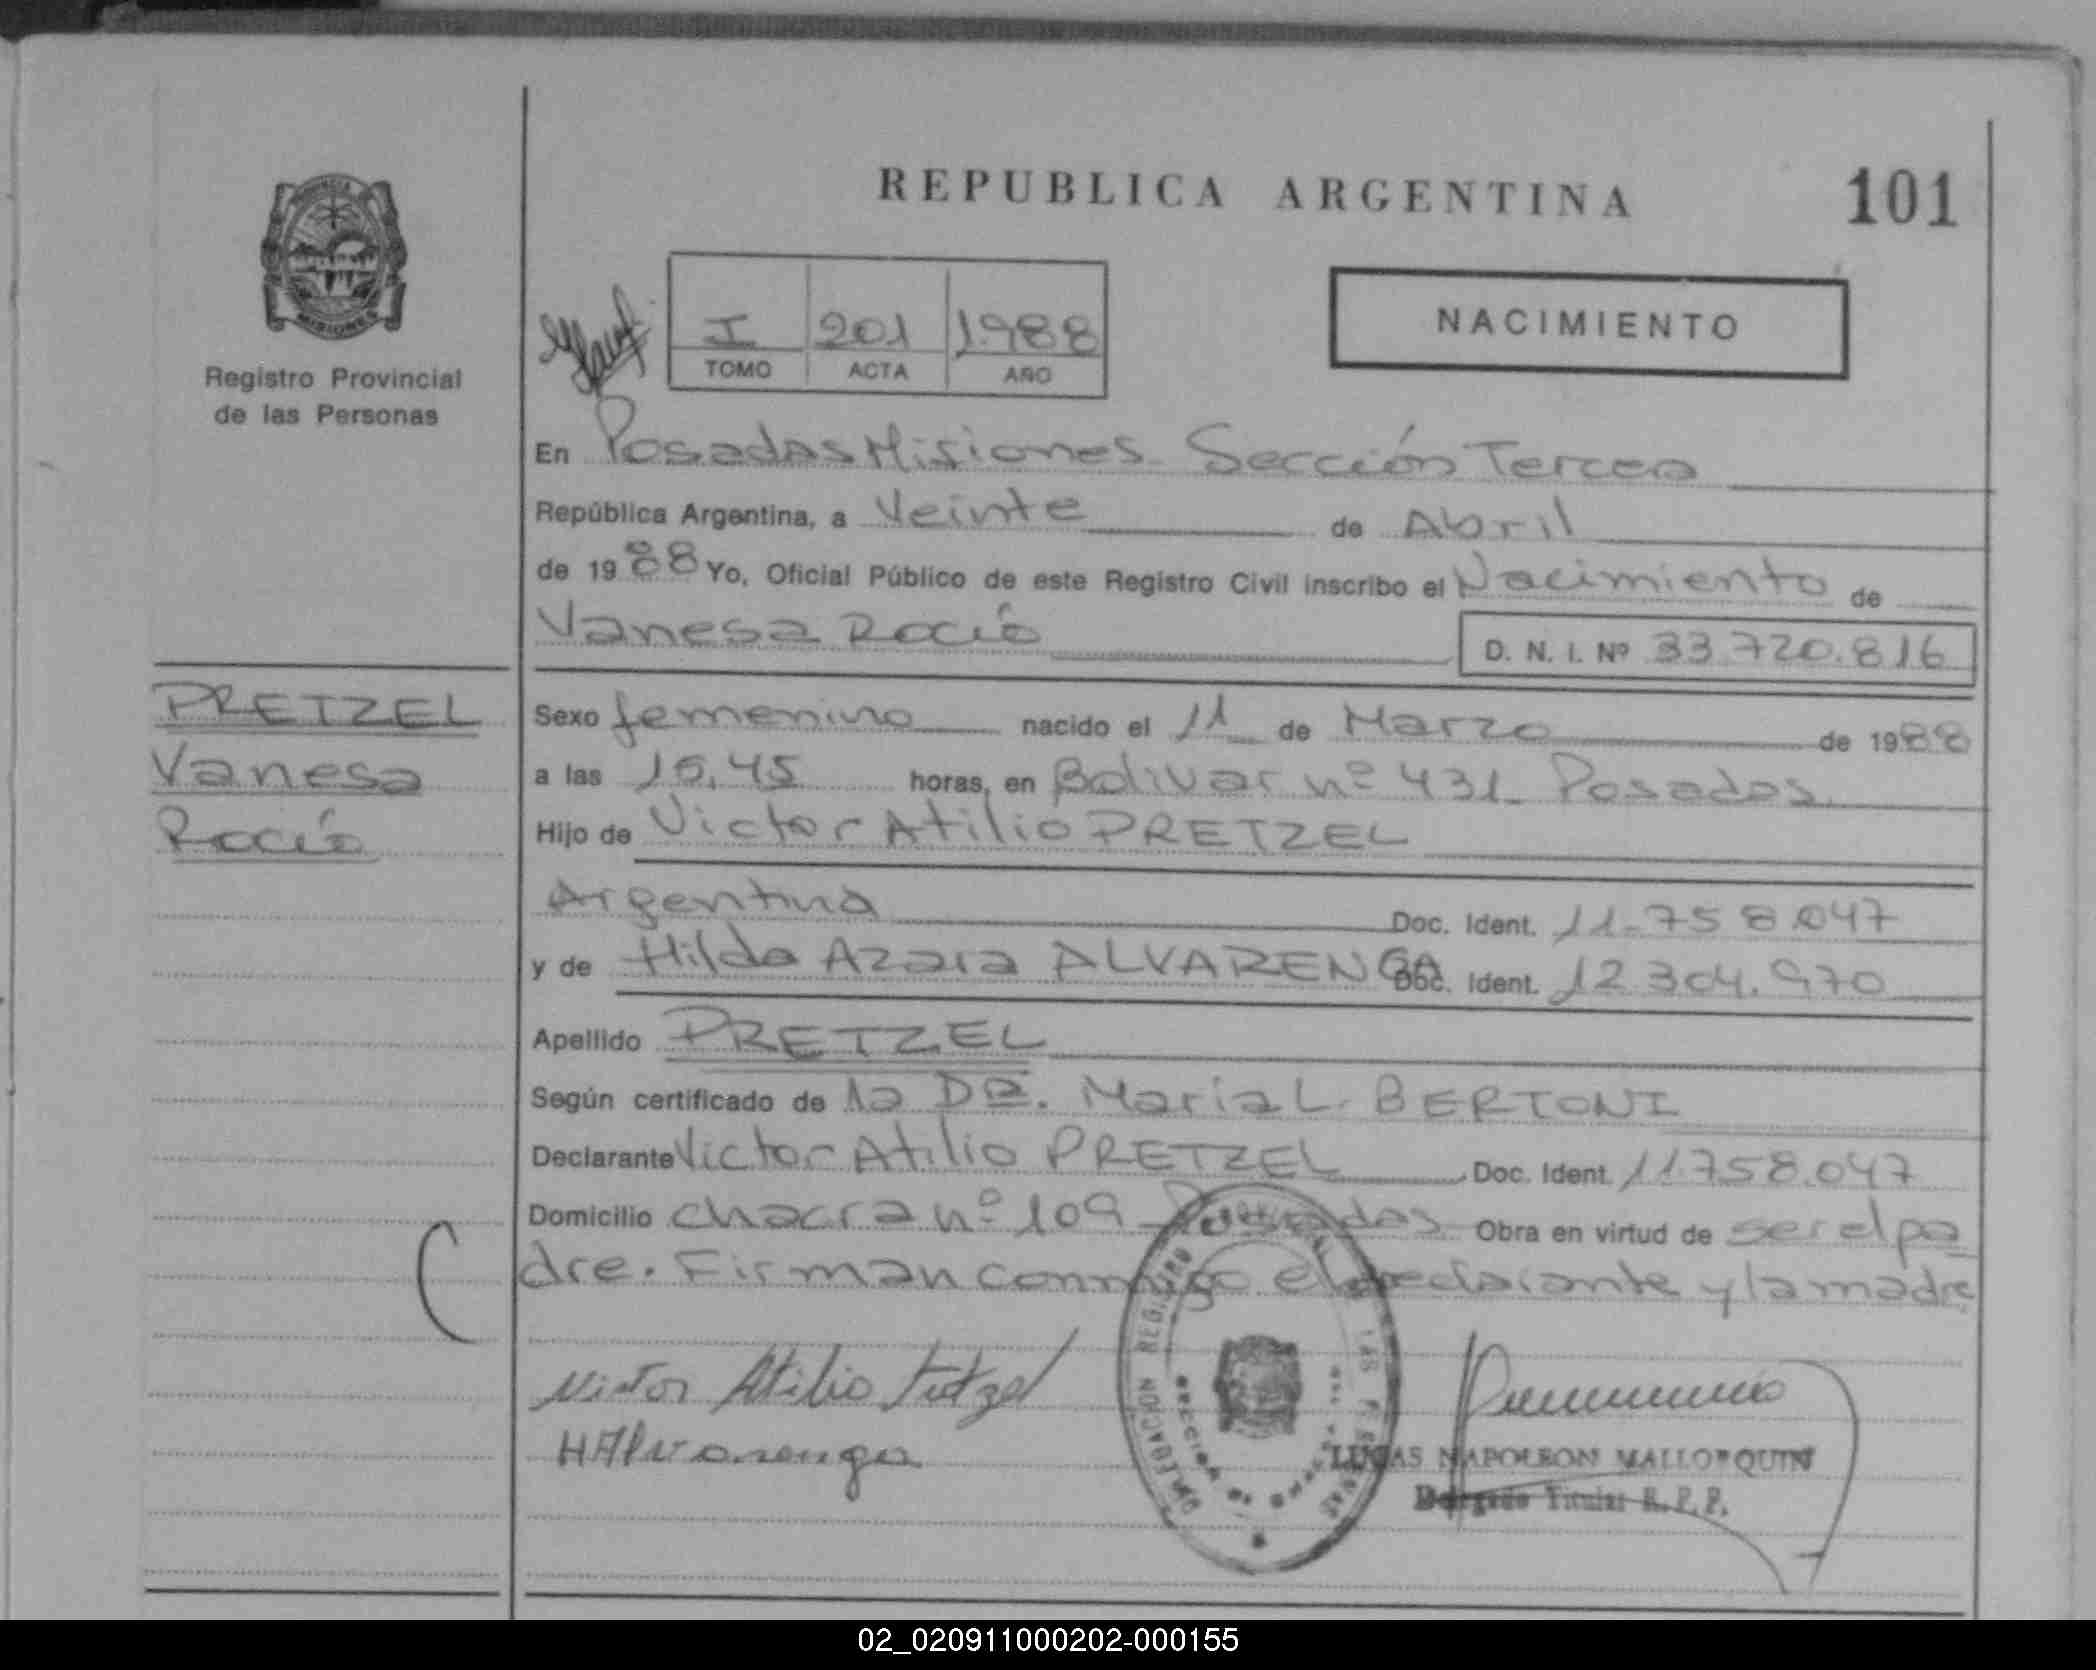 REPUBLICA ARGENTINA
101
PROVINCIA
MISIONES
Registro Provincial
de las Personas
I 201 1.988
TOMO ACTA AÑO
NACIMIENTO
En Posadas Misiones. Sección Tercera
República Argentina, a Veinte de Abril
de 1988 Yo, Oficial Público de este Registro Civil inscribo el Nacimiento de
Vanesa Rocío
D. N. I. Nº 33.720.816
PRETZEL
Vanesa
Rocío
Sexo femenino nacido el 11 de Marzo de 1988
a las 15,45 horas, en Bolivar nº 431. Posadas.
Hijo de Victor Atilio PRETZEL
Argentina Doc. Ident. 11.758.047
y de Hilda Azara ALVARENGA Doc. Ident. 12.304.970
Apellido PRETZEL
Según certificado de la Dra. Maria L. BERTONI
Declarante Victor Atilio PRETZEL Doc. Ident. 11.758.047
Domicilio chacra nº 109 Posadas Obra en virtud de ser el pa
dre. Firman conmigo el declarante y la madre
Victor Atilio Pretzel
HAlvarenga
DELEGACION REGISTRO LAS PERSONAS
SECCION
LUCAS NAPOLEON MALLORQUIN
Delegado Titular R. P. P.
02_020911000202-000155